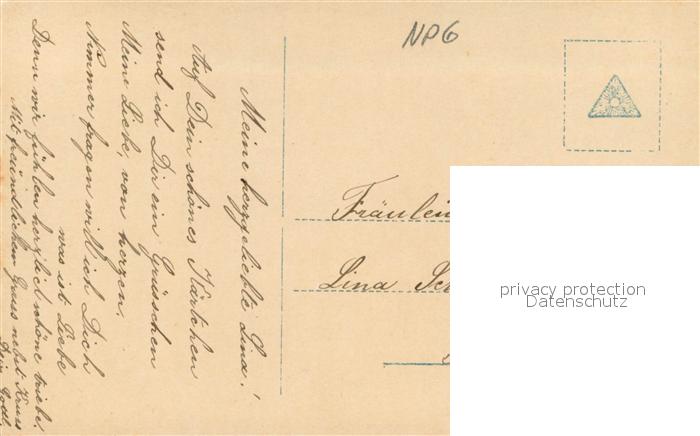 Meine herzgeliebte Lina!
Auf Dein schönes Kärtchen
send ich Dir ein Grüschen
Meine Lieb, von herzen.
Nimmer fragen will ich Dich
was ist Liebe
Denn wir fühlen herzlich schöne triebe.
Mit freundlichen Gruss nebst Kuss
Dein
NP6
Fräulein
Lina
privacy protection
Datenschutz